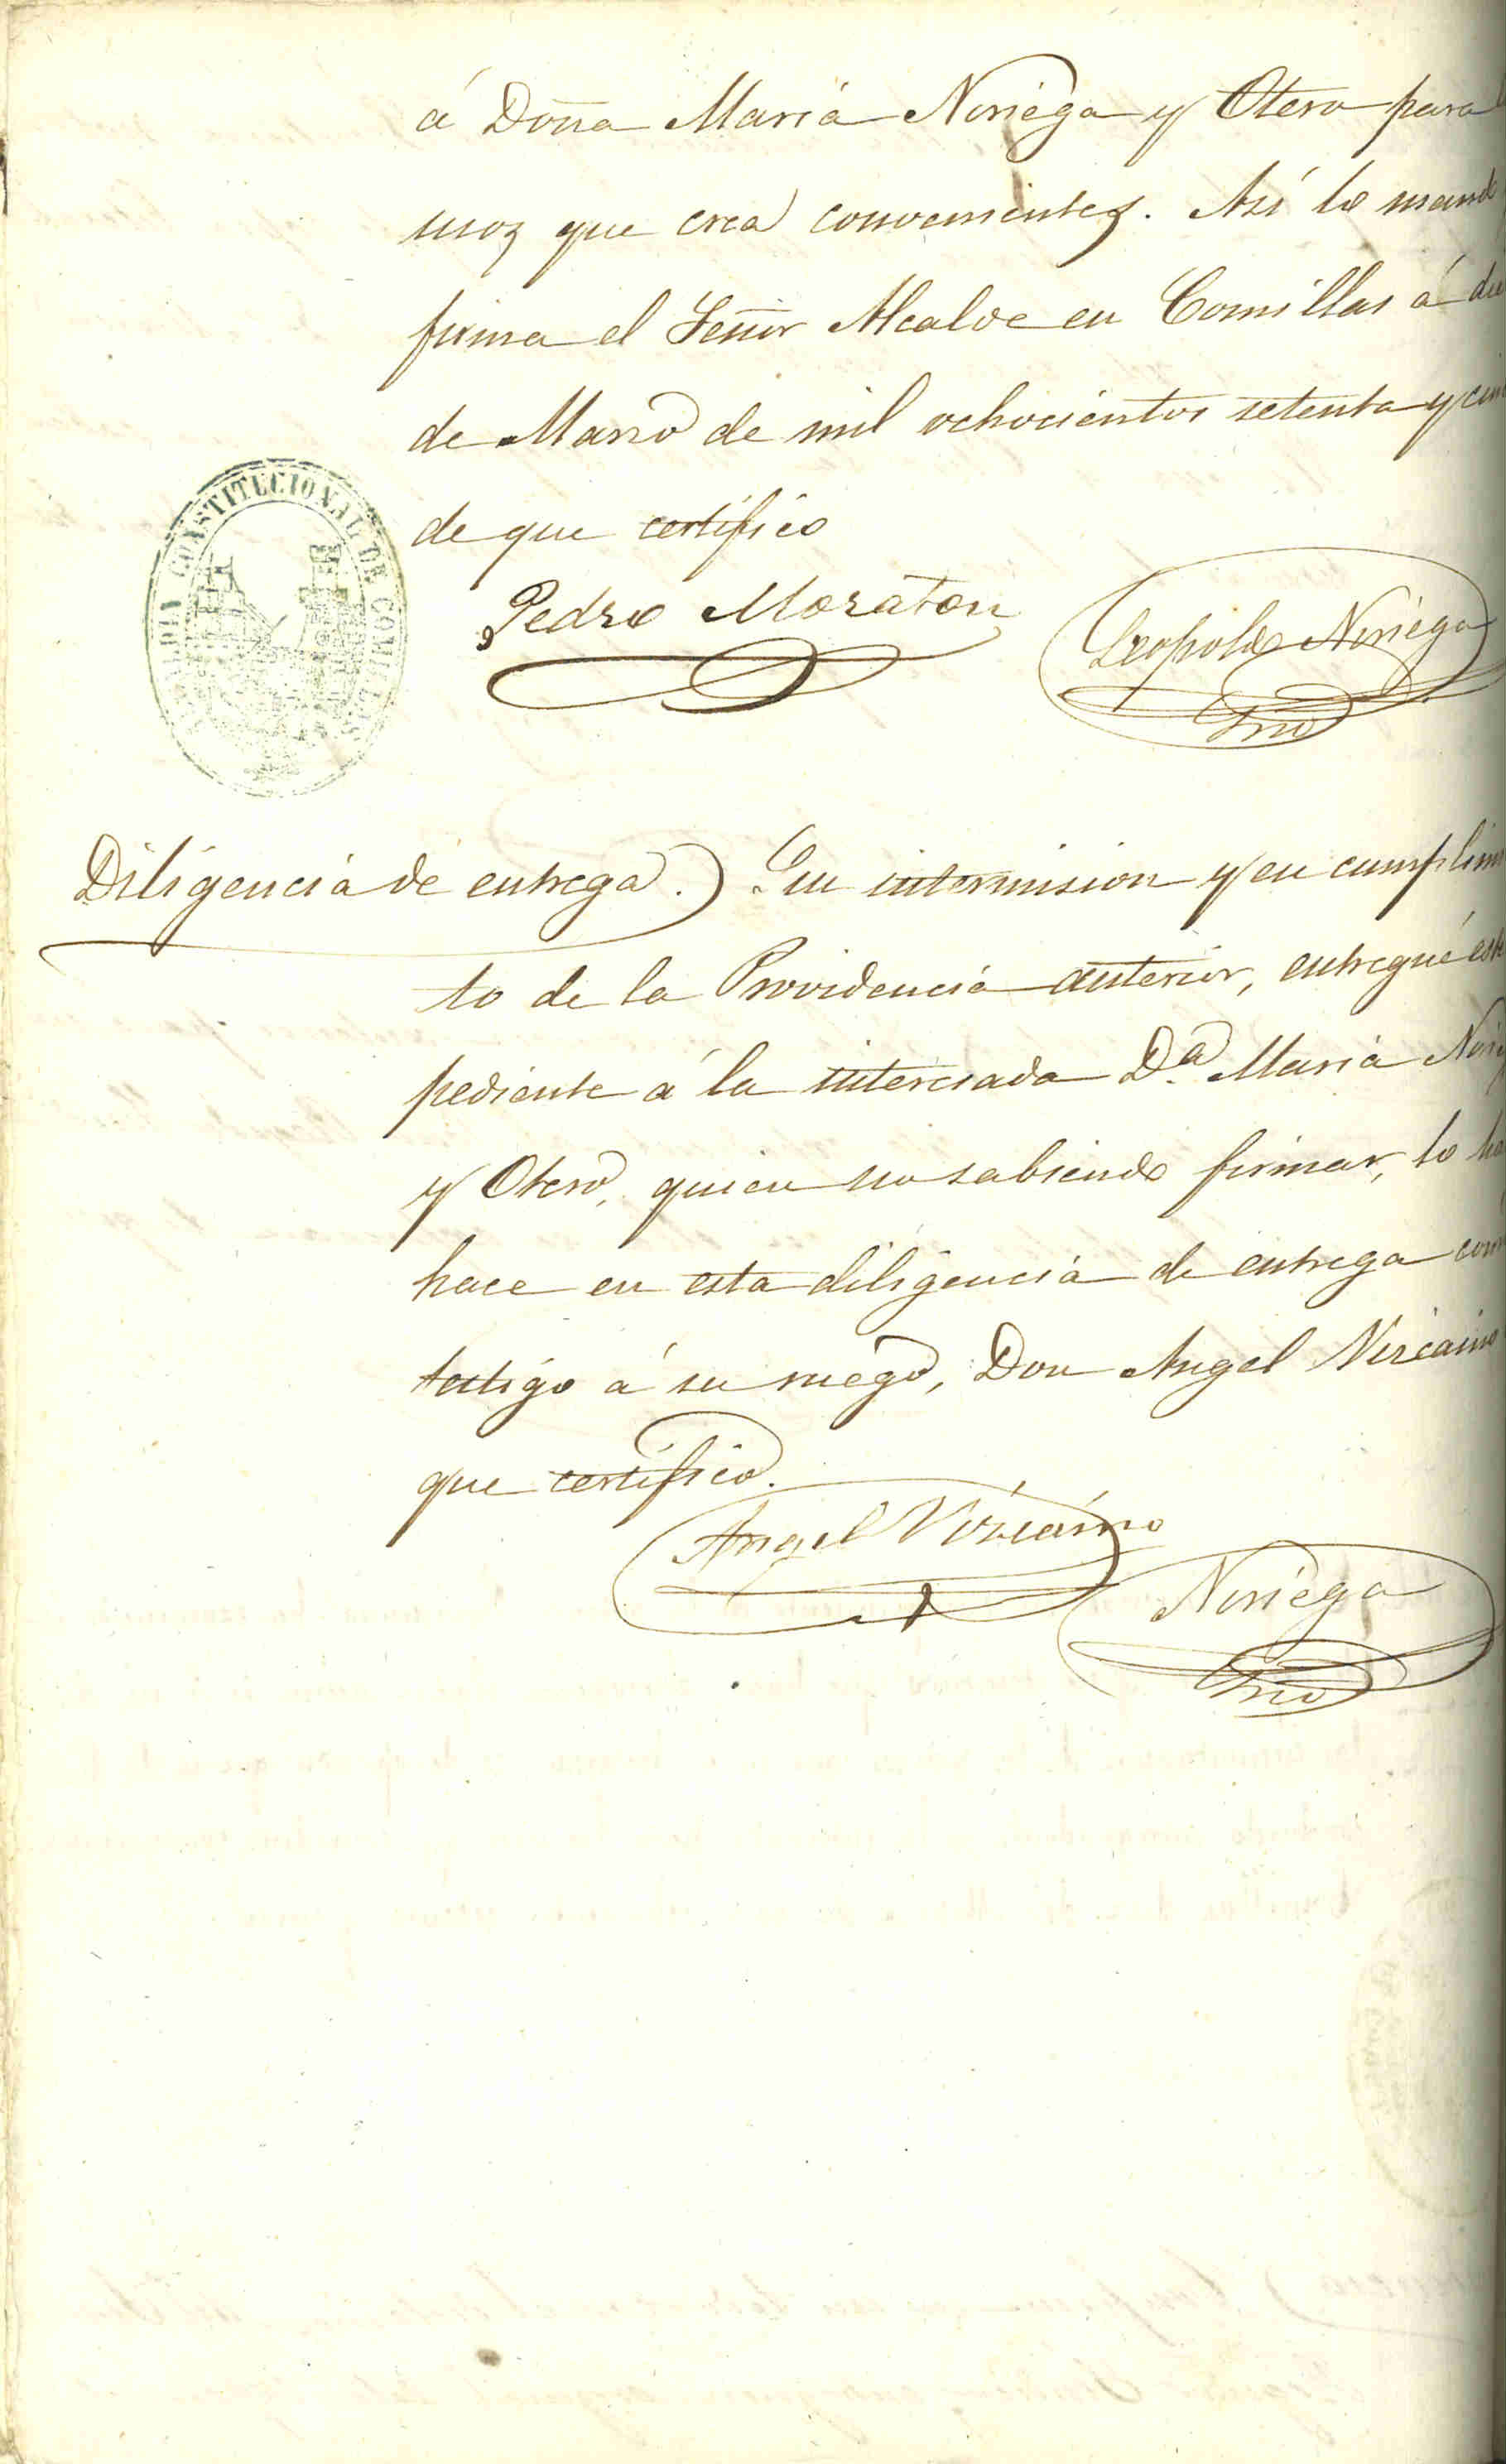 á Doña María Noriega y Otero para
usos que crea convenientes. Así lo mand
firma el Señor Alcalde en Comillas á di
de Marzo de mil ochocientos setenta y cin
de que certifico
ALCALDIA CONSTITUCIONAL DE COMILLAS
Pedro Moraton
Leopoldo Noriega
Srio
Diligencia de entrega.) En intermision y en cumplim
to de la Providencia anterior, entregué este
pediente á la interesada D.ª Maria Norieg
y Otero, quien no sabiendo firmar, lo ha
hace en esta diligencia de entrega com
testigo á su ruego, Don Angel Vizcaino
que certifico.
Angel Vizcaíno
Noriega
Srio